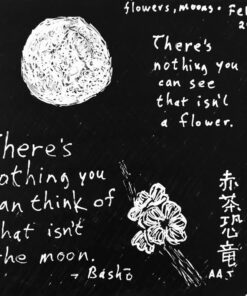 flowers, moons. Fe
2
There's
nothing you
can see
that isn't
a flower.
here's
othing you
an think of
hat isn't
he moon.
- Bashō
赤茶恐竜
AAJ